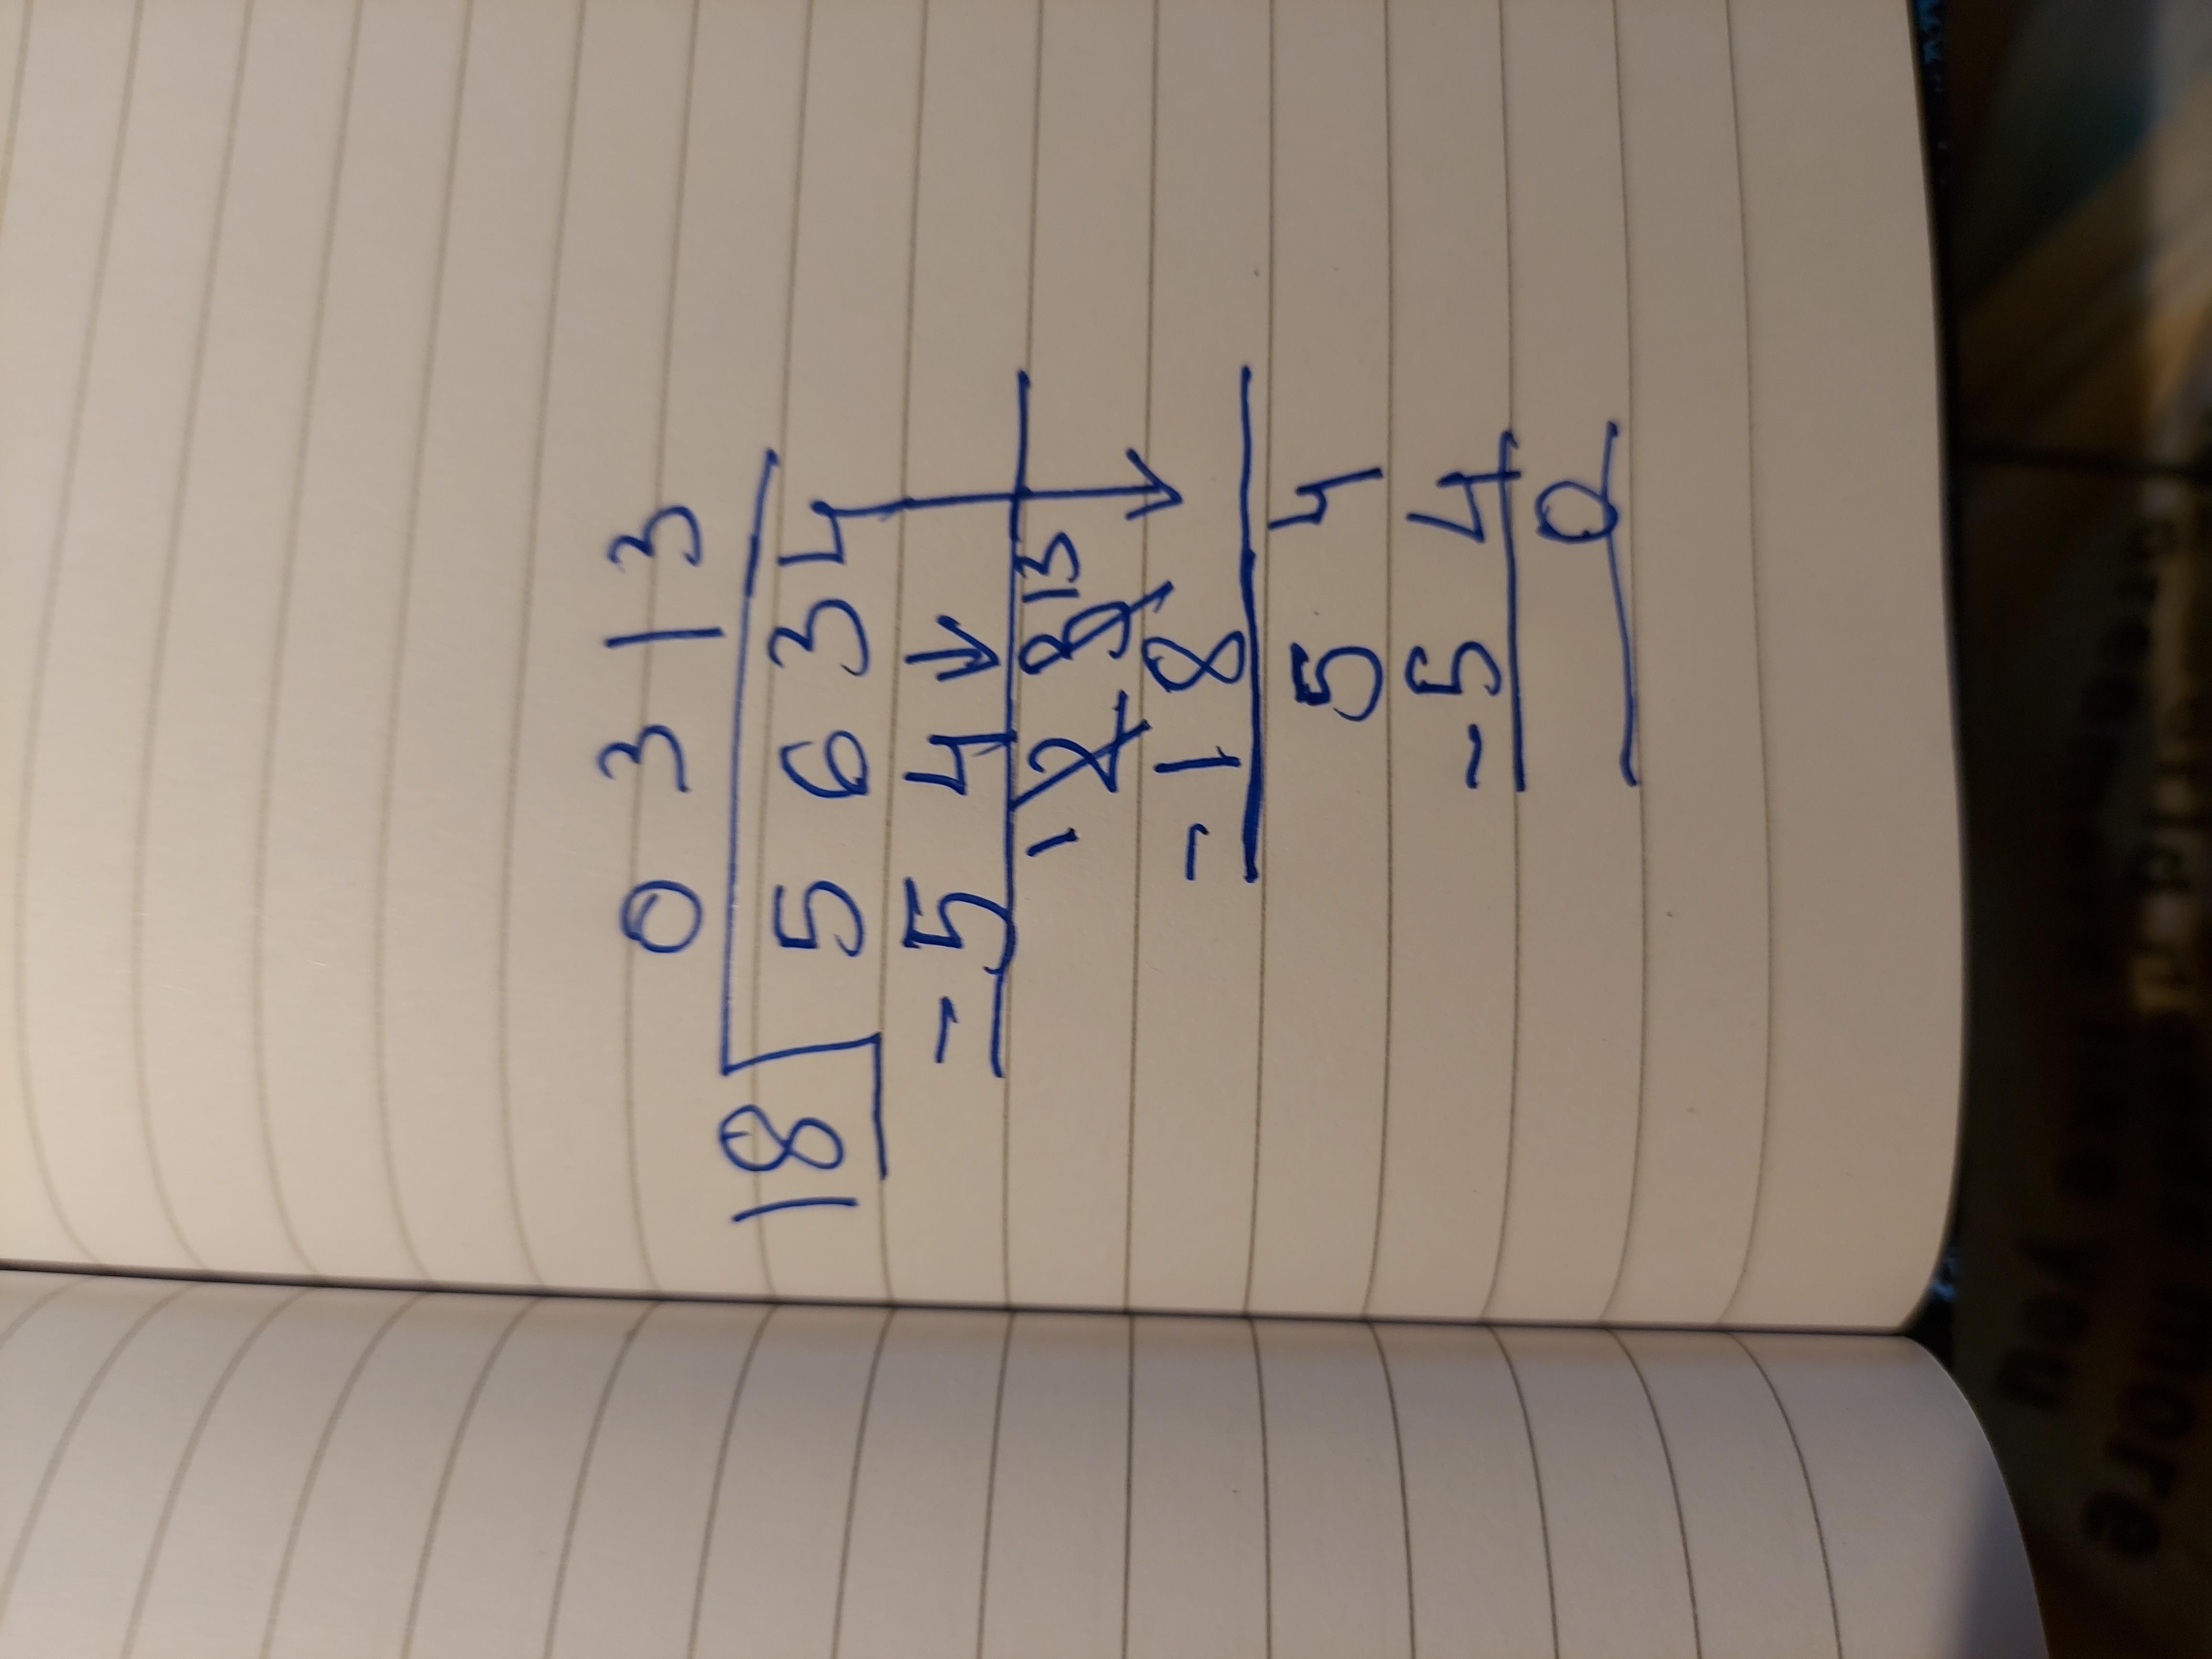 0 3 1 3
18 5 6 3 4
- 5 4
1 8 13
2 3
- 1 8
5 4
- 5 4
0
you
more